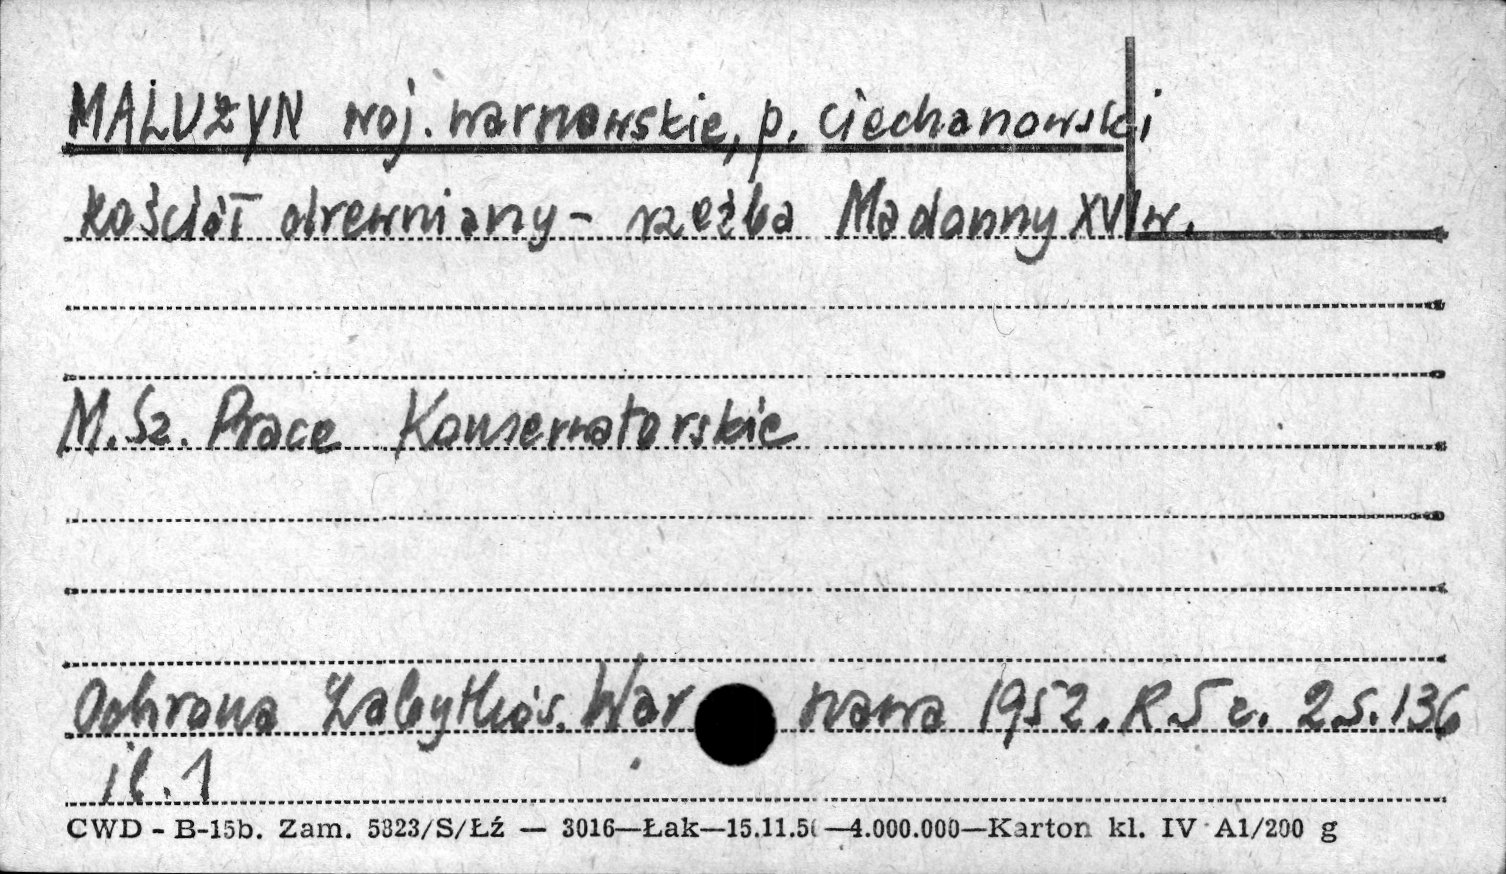 MALUŻYN woj. warszawskie, p. ciechanowski
kościół drewniany - rzeźba Madonny XVI w.
M. Sz. Prace Konserwatorskie
Ochrona Zabytków. War szawa 1952. R. 5 z. 2 s. 136
il. 1
CWD - B-15b. Zam. 5823/S/Łź — 3016—Łak—15.11.5 —4.000.000—Karton kl. IV A1/200 g